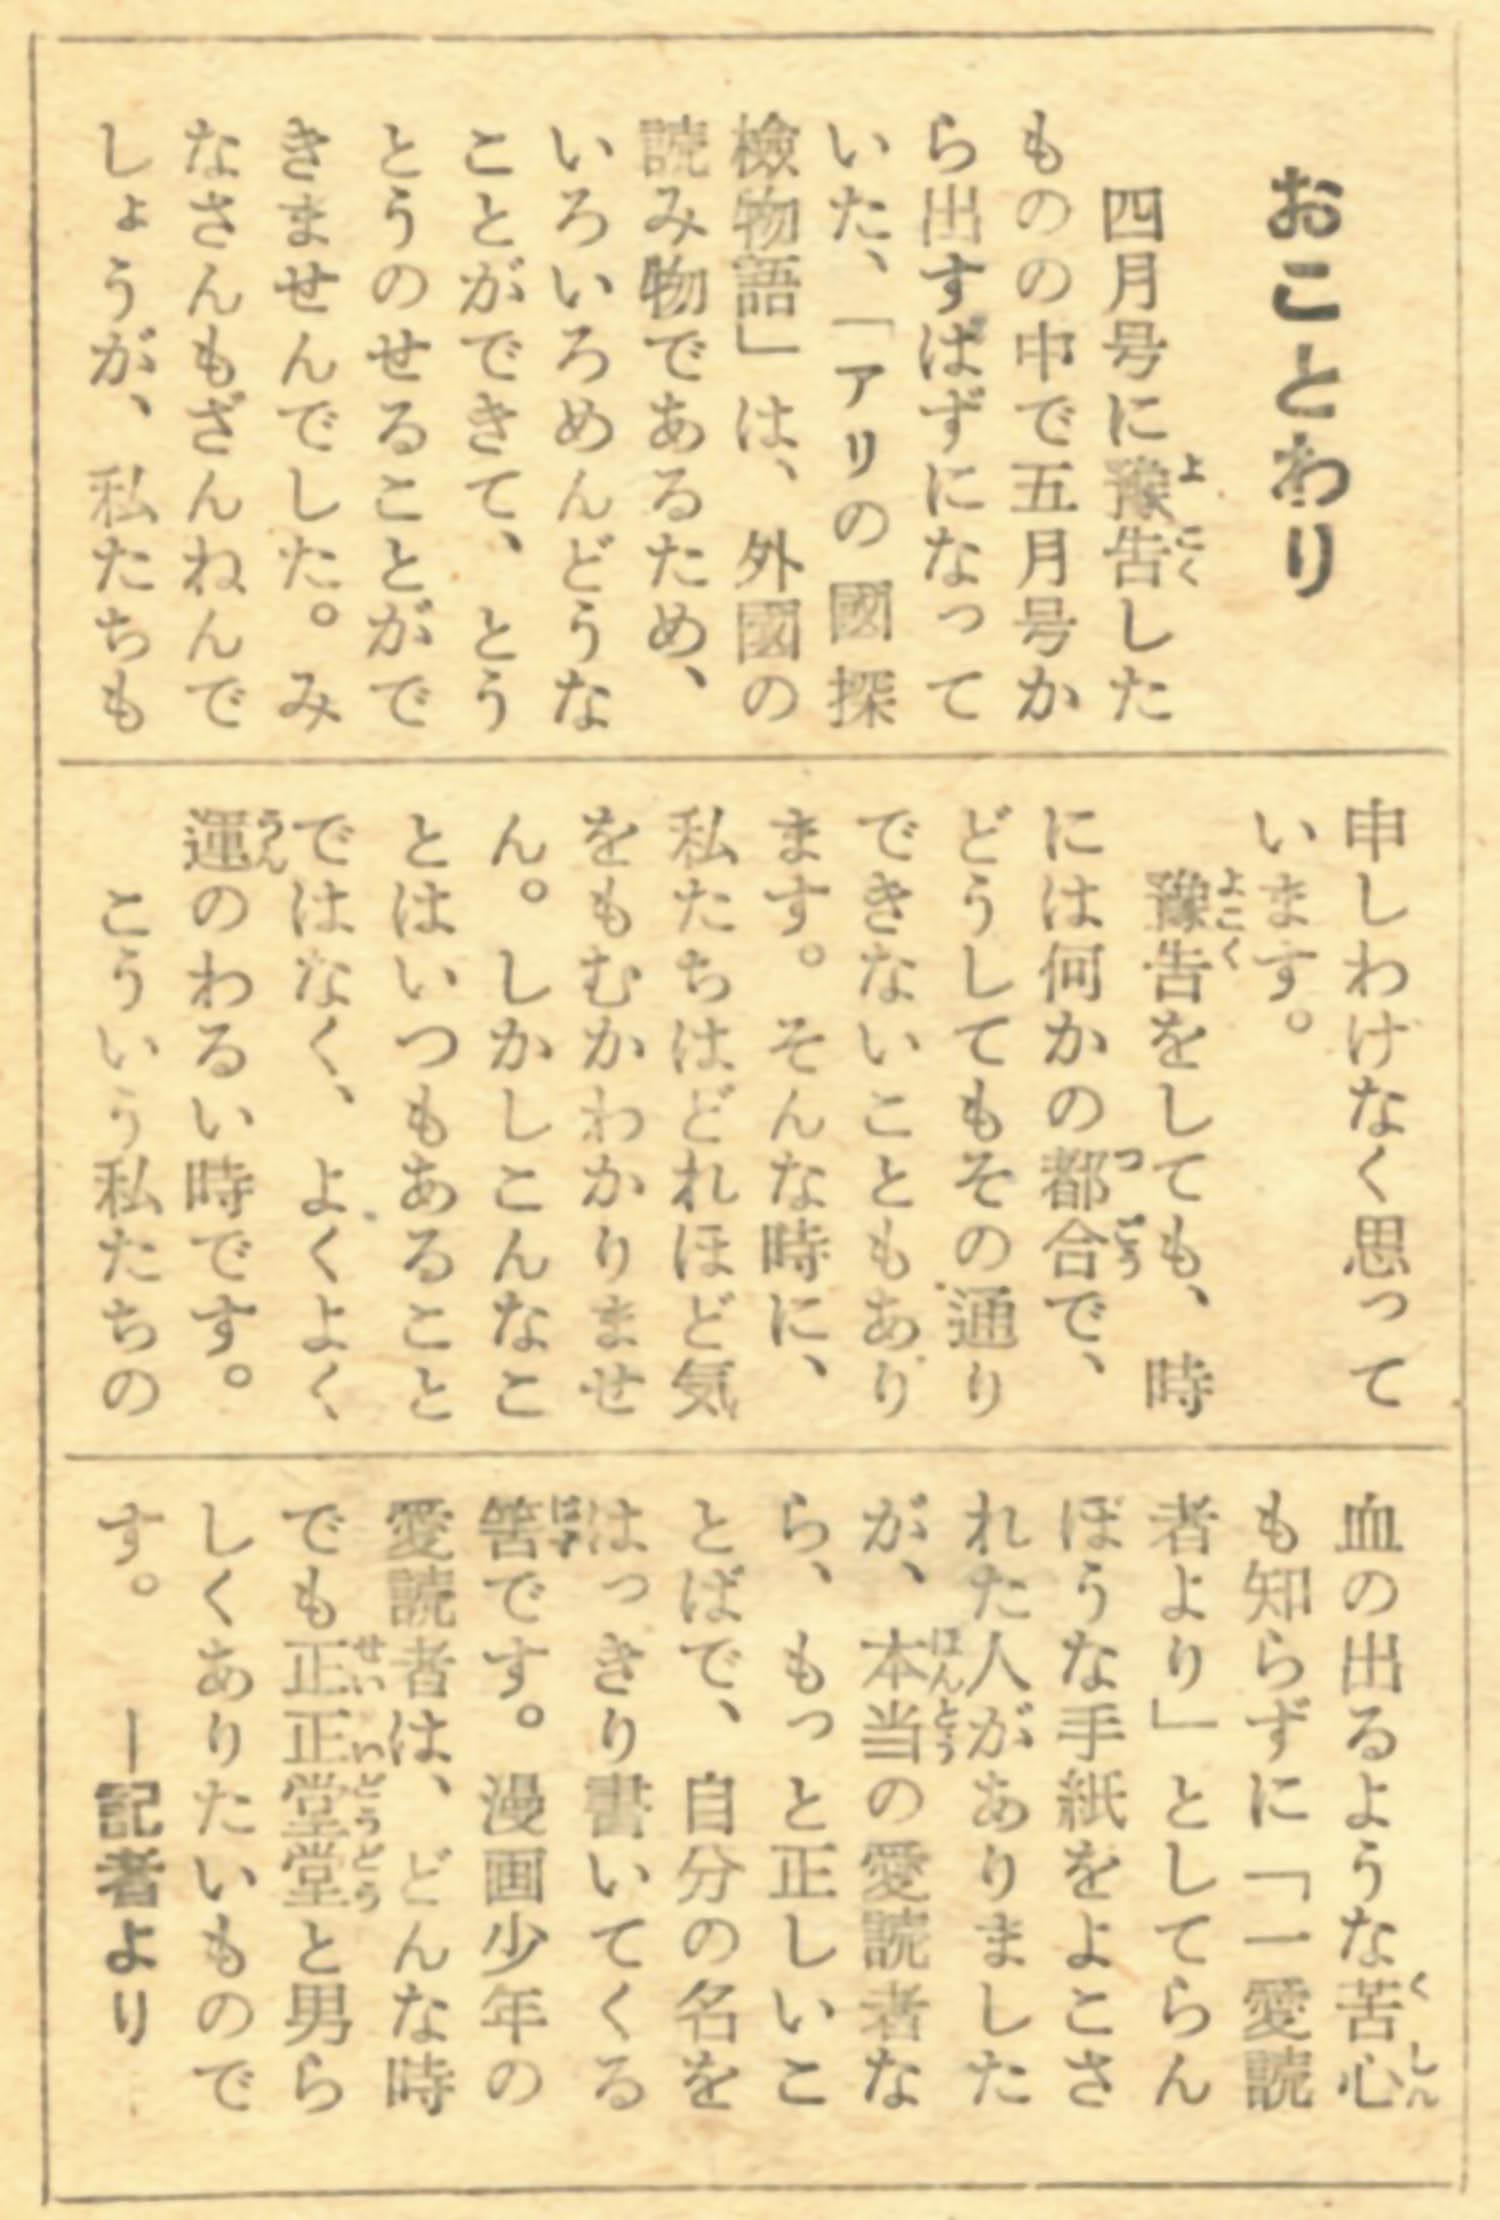 おことわり
四月号に豫告した
ものの中で五月号か
ら出すばずになって
いた、「アリの國探
檢物語」は、外國の
読み物であるため、
いろいろめんどうな
ことができて、とう
とうのせることがで
きませんでした。み
なさんもざんねんで
しょうが、私たちも
申しわけなく思って
います。
豫告をしても、時
には何かの都合で、
どうしてもその通り
できないこともあり
ます。そんな時に、
私たちはどれほど気
をもむかわかりませ
ん。しかしこんなこ
とはいつもあること
ではなく、よくよく
運のわるい時です。
こういう私たちの
血の出るような苦心
も知らずに「一愛読
者より」としてらん
ぼうな手紙をよこさ
れた人がありました
が、本当の愛読者な
ら、もっと正しいこ
とばで、自分の名を
はっきり書いてくる
筈です。漫画少年の
愛読者は、どんな時
でも正正堂堂と男ら
しくありたいもので
す。　ー記者より